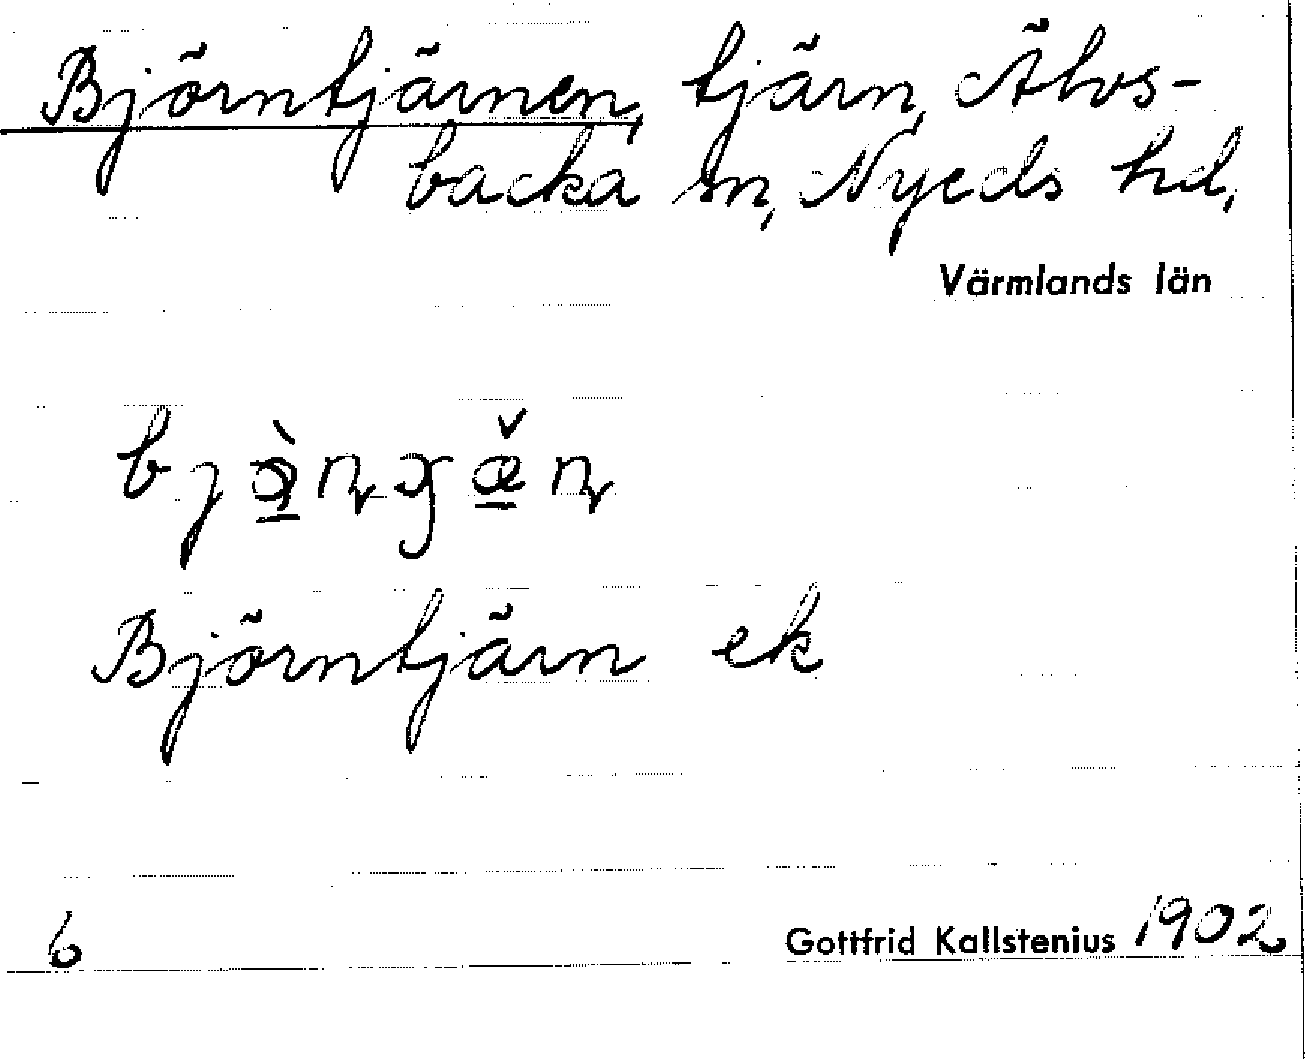 Björntjärnen, tjärn, Älvs-
backa sn, Nyeds hd,
Värmlands län
Björntjärn ek
6
Gottfrid Kallstenius 1902